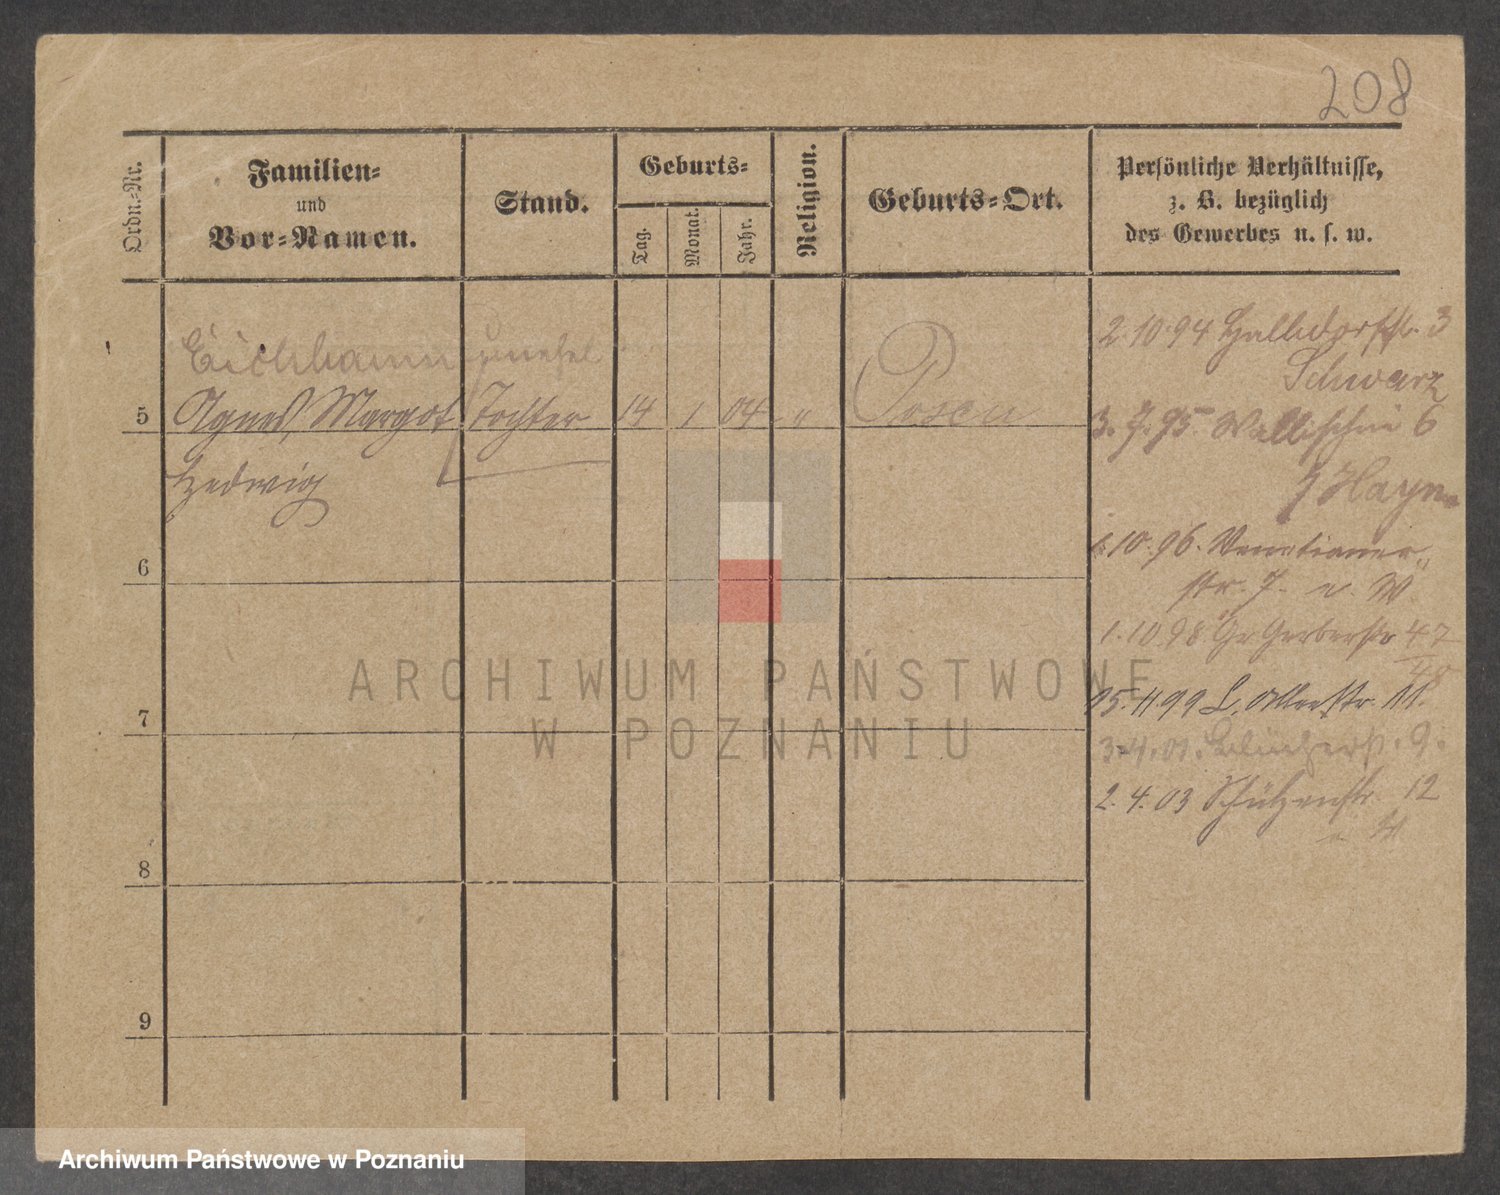 208
Ordn.-Nr.
Familien-
und
Vor-Namen.
Stand.
Geburts-
Tag.
Monat.
Jahr.
Religion.
Geburts-Ort.
Persönliche Verhältnisse,
z. B. bezüglich
des Gewerbes u. s. w.
5
Agnes Margot
Hedwig
Tochter
14
1
04
"
Posen
6
7
8
9
2.10.94 Halbdorfstr. 3
Schwarz
3.7.95 Wallischei 6
Hayn
1.10.96. Venetianer
str. 7.
1.10.98 Gr Gerberstr 47
15.11.99 L.
3.4.01. Blücherst. 9.
2.4.03 Schützenstr. 12
ARCHIWUM PAŃSTWOWE
W POZNANIU
Archiwum Państwowe w Poznaniu